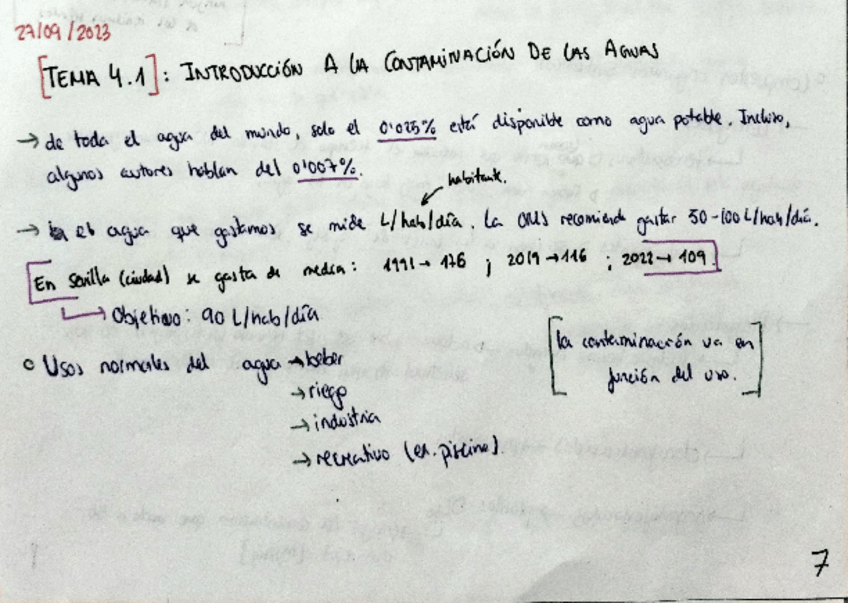 27/09/2023
[TEMA 4.1]: INTRODUCCIÓN A LA CONTAMINACIÓN DE LAS AGUAS
→ de toda el agua del mundo, solo el 0'025% está disponible como agua potable. Incluso,
algunos autores hablan del 0'007%.
habitante.
→ el agua que gastamos se mide L/hab/día. La OMS recomienda gastar 50-100 L/hab/día.
En Sevilla (ciudad) se gasta de media: 1991→ 176 ; 2019→116 ; 2022→ 109
→ Objetivo: 90 L/hab/día
[La contaminación va en
función del uso.]
○ Usos normales del agua →beber
→riego
→industria
→recreativo (ex. piscina).
7